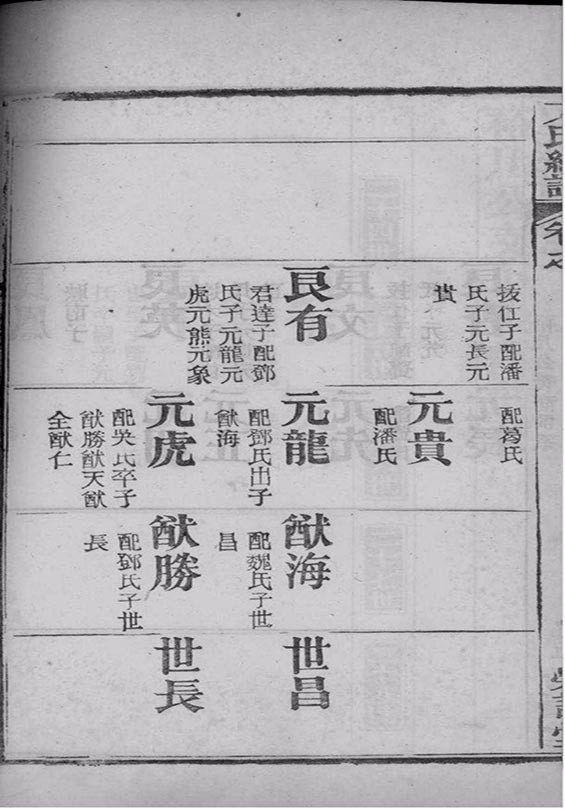 氏續譜
卷之
拔仕子配潘
氏子元長元
貴
良有
君達子配鄧
氏子元龍元
虎元熊元象
配葛氏
元貴
配潘氏
元龍
配鄧氏出子
猷海
元虎
配吳氏卒子
猷勝猷天猷
全猷仁
猷海
配魏氏子世
昌
猷勝
配鄧氏子世
長
世昌
世長